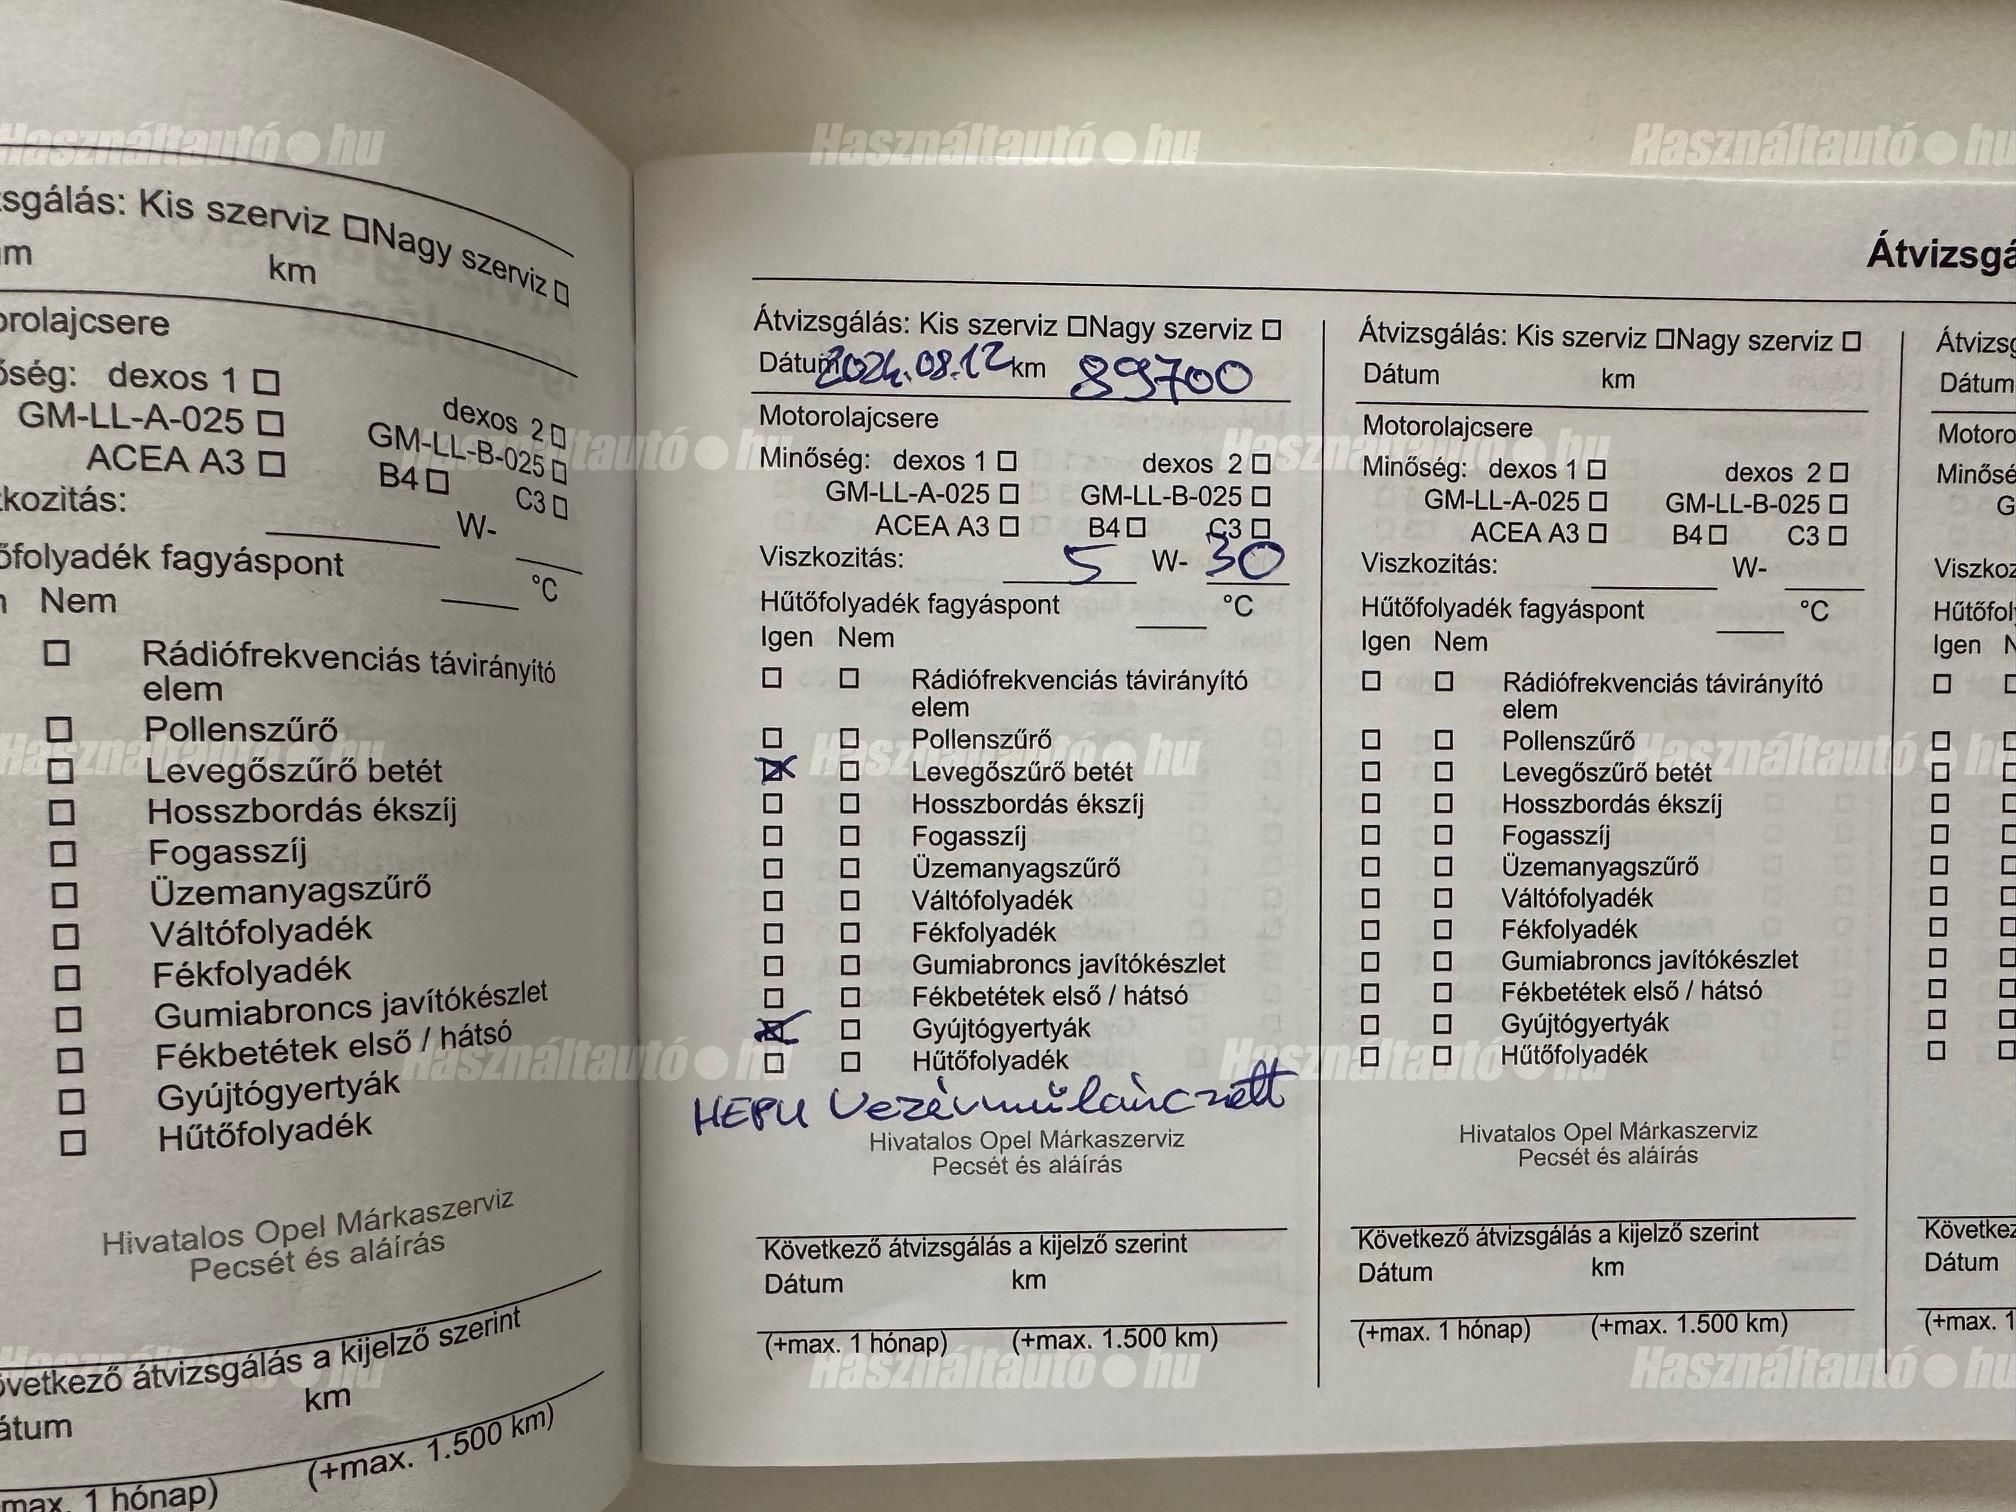 Használtautó hu
Használtautó hu
Használtautó hu
zsgálás: Kis szerviz Nagy szerviz
m km
orolajcsere
őség: dexos 1 dexos 2
GM-LL-A-025 GM-LL-B-025
ACEA A3 B4 C3
zkozitás: W-
őfolyadék fagyáspont °C
Nem
Rádiófrekvenciás távirányító
elem
Pollenszűrő
Levegőszűrő betét
Hosszbordás ékszíj
Fogasszíj
Üzemanyagszűrő
Váltófolyadék
Fékfolyadék
Gumiabroncs javítókészlet
Fékbetétek első / hátsó
Gyújtógyertyák
Hűtőfolyadék
Hivatalos Opel Márkaszerviz
Pecsét és aláírás
övetkező átvizsgálás a kijelző szerint
átum km
max. 1 hónap) (+max. 1.500 km)
Átvizsgá
Átvizsgálás: Kis szerviz Nagy szerviz
Dátum 2024.08.12 km 89700
Motorolajcsere
Minőség: dexos 1 dexos 2
GM-LL-A-025 GM-LL-B-025
ACEA A3 B4 C3
Viszkozitás: 5 W- 30
Hűtőfolyadék fagyáspont °C
Igen Nem
Rádiófrekvenciás távirányító
elem
Pollenszűrő
Levegőszűrő betét
Hosszbordás ékszíj
Fogasszíj
Üzemanyagszűrő
Váltófolyadék
Fékfolyadék
Gumiabroncs javítókészlet
Fékbetétek első / hátsó
Gyújtógyertyák
Hűtőfolyadék
HEPU Vezérműláncszett
Hivatalos Opel Márkaszerviz
Pecsét és aláírás
Következő átvizsgálás a kijelző szerint
Dátum km
(+max. 1 hónap) (+max. 1.500 km)
Átvizsgálás: Kis szerviz Nagy szerviz
Dátum km
Motorolajcsere
Minőség: dexos 1 dexos 2
GM-LL-A-025 GM-LL-B-025
ACEA A3 B4 C3
Viszkozitás: W-
Hűtőfolyadék fagyáspont °C
Igen Nem
Rádiófrekvenciás távirányító
elem
Pollenszűrő
Levegőszűrő betét
Hosszbordás ékszíj
Fogasszíj
Üzemanyagszűrő
Váltófolyadék
Fékfolyadék
Gumiabroncs javítókészlet
Fékbetétek első / hátsó
Gyújtógyertyák
Hűtőfolyadék
Hivatalos Opel Márkaszerviz
Pecsét és aláírás
Következő átvizsgálás a kijelző szerint
Dátum km
(+max. 1 hónap) (+max. 1.500 km)
Átvizsg
Dátum
Motoro
Minősé
G
Viszkoz
Hűtőfol
Igen N
Követke
Dátum
(+max. 1